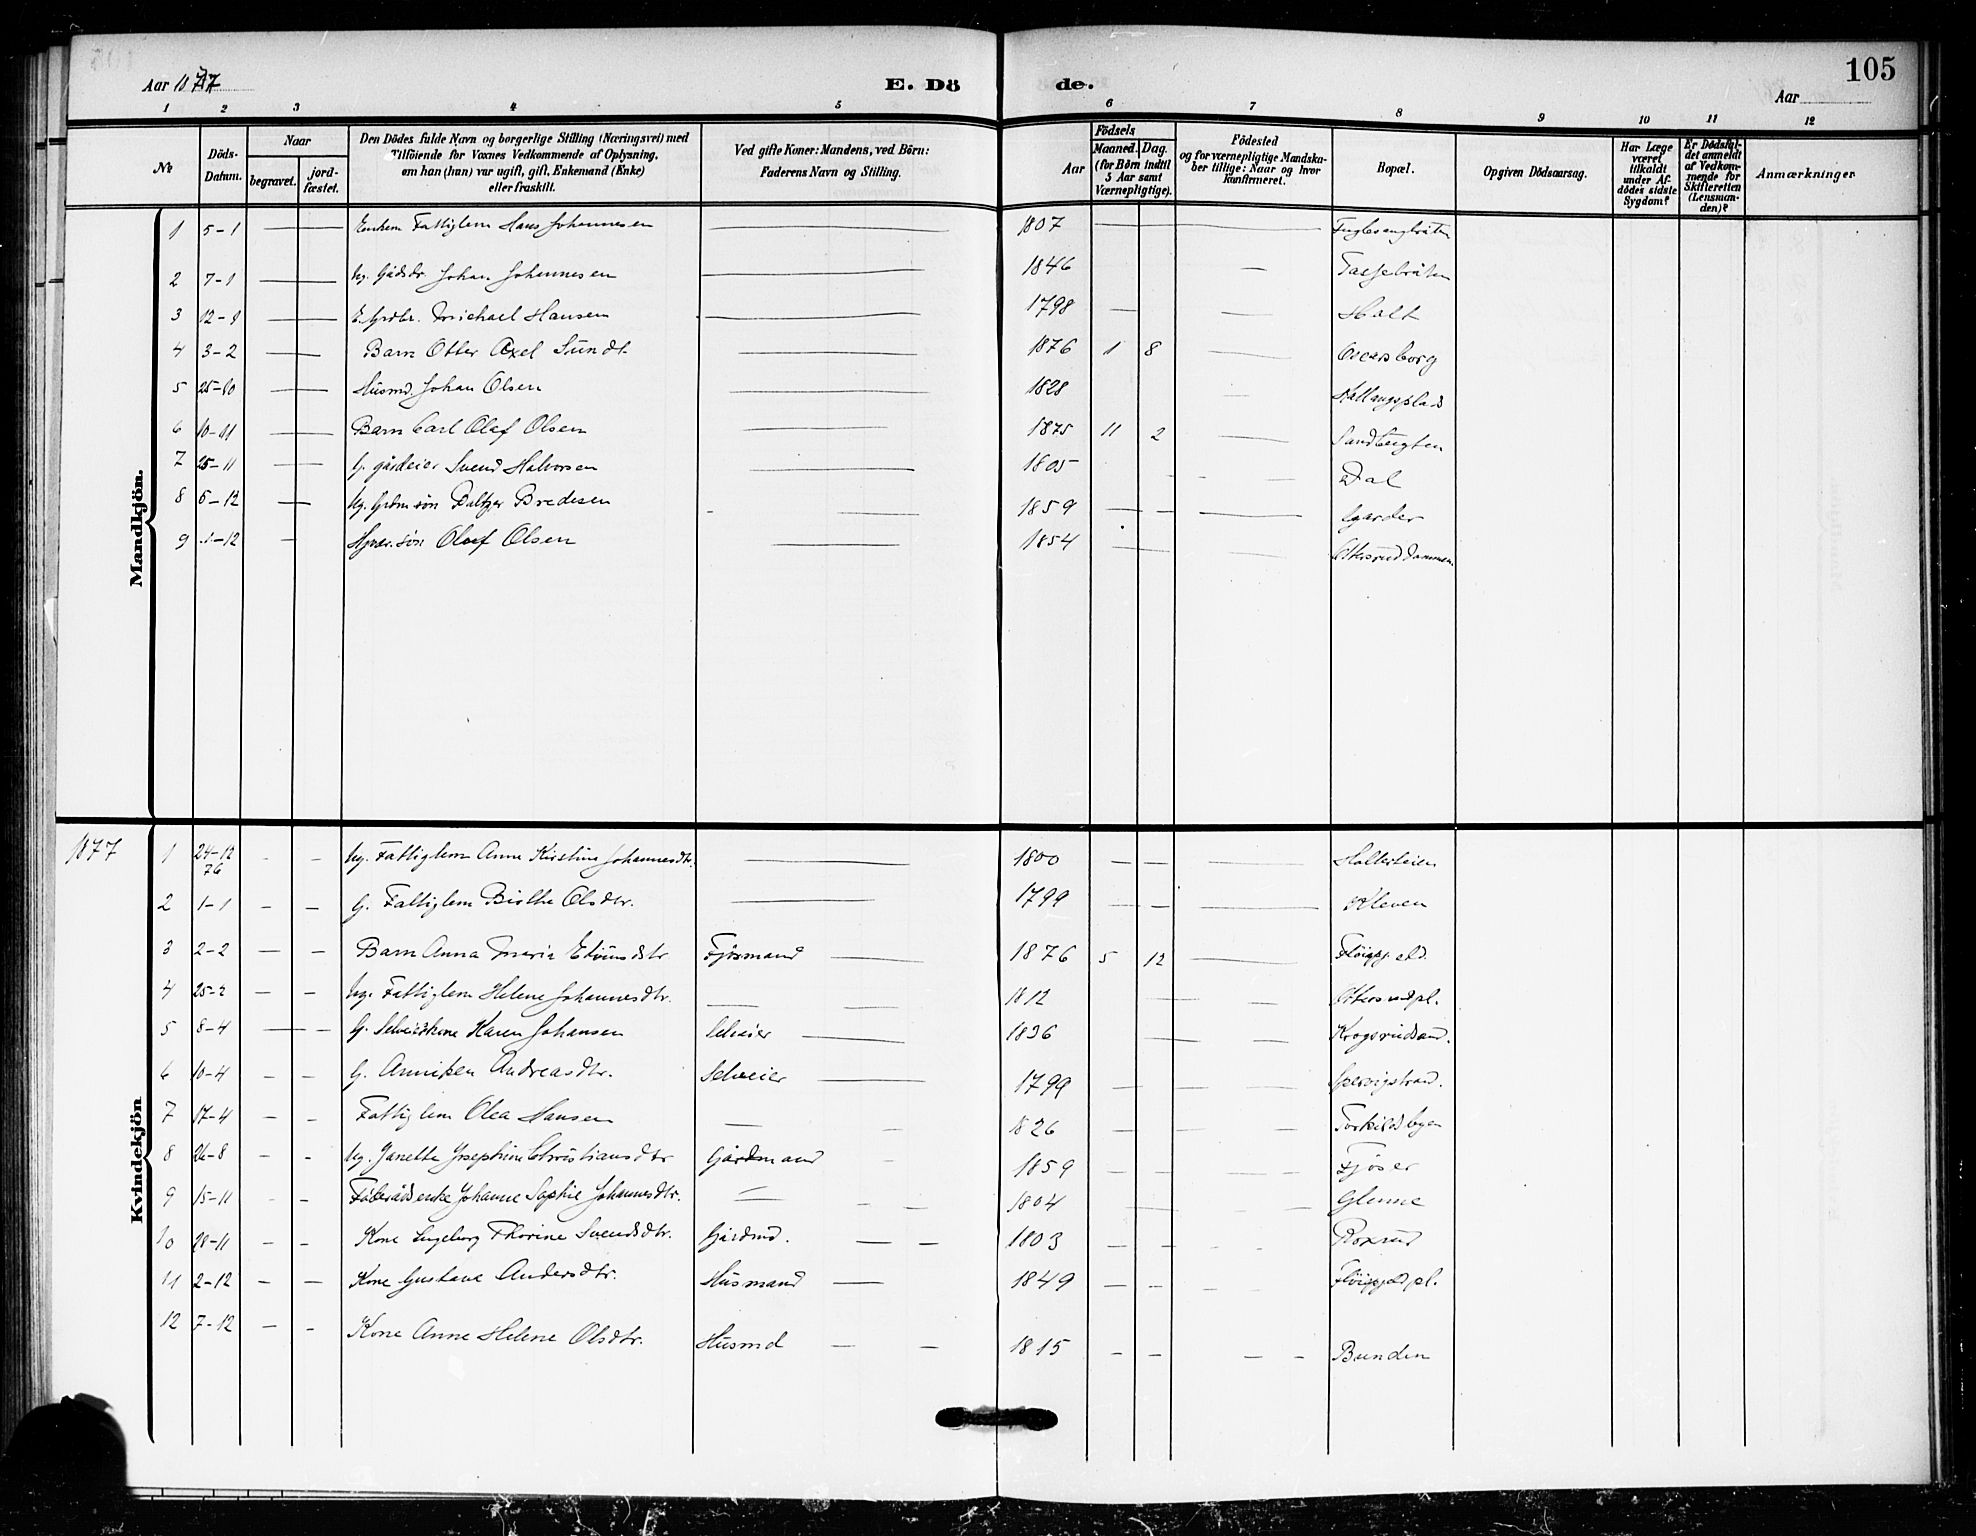 105
Aar 1877
E. Döde.
Aar
1 2 3 4 5 6 7 8 9 10 11 12
No
Döds-Datum.
Naar begravet. jordfæstet.
Den Dödes fulde Navn og borgerlige Stilling (Næringsvei) med Tilföiende for Voxnes Vedkommende af Oplysning, om han (hun) var ugift, gift, Enkemand (Enke) eller fraskilt.
Ved gifte Koner: Mandens, ved Börn: Faderens Navn og Stilling.
Födsels Aar Maaned. Dag. (for Börn indtil 5 Aar samt Værnepligtige).
Födested og for værnepligtige Mandskaber tillige: Naar og hvor konfirmeret.
Bopæl.
Opgiven Dödsaarsag.
Har Læge været tilkaldt under Afdödes sidste Sygdom?
Er Dödsfaldet anmeldt af Vedkommende for Skifteretten (Lensmanden)?
Anmærkninger
Mandkjön.
1 5-1 — Enkem Fattiglem Hans Johannesen — 1807 —
2 7-1 — Ug. Johan Johannesen — 1846 —
3 12-1 — Michael Hansen — 1798 — Holt
4 3-2 — Barn Otter Axel Sundt — 1876 1 8 — Oscarsborg
5 25-10 — Husmd. Johan Olsen — 1828 — Kallangsplads
6 10-11 — Barn Carl Olaf Olsen — 1875 11 2 —
7 25-11 — G. gårdeier Svend Halvorsen — 1805 — Dal
8 6-12 — Ug. Grdm søn Baltzer Bredesen — 1859 — Garder
9 1-12 — søn Oluf Olsen — 1854 —
Kvindekjön
1877
1 24-12 76 — Ug. Fattiglem Anne Kirstine Johannesdtr. — 1800 —
2 1-1 — G. Fattiglem Birthe Olsdtr. — 1799 — Kleven
3 2-2 — Barn Anna Maria Edvinsdtr. Fjøsmand — 1876 5 12 —
4 25-2 — Ug. Fattiglem Helene Johannesdtr. — 1812 —
5 8-4 — G. Karen Johansen Selveier — 1836 —
6 10-4 — G. Anniken Andreasdtr. Selveier — 1799 —
7 17-4 — Fattiglem Olea Hansen — 1826 — Torkildsbyen
8 26-8 — Ug. Janette Josephine Christiansdtr Gårdmand — 1859 — Fjøser
9 15-11 — Føderådsenke Johanne Sophie Johannesdtr. — 1804 — Glenne
10 28-11 — Kone Ingeborg Thorine Svendsdtr. Gårdmd. — 1803 — Roxrud
11 2-12 — Kone Gustava Andersdtr. Husmand — 1849 —
12 7-12 — Kone Anne Helene Olsdtr. Husmd — 1815 — Bunden